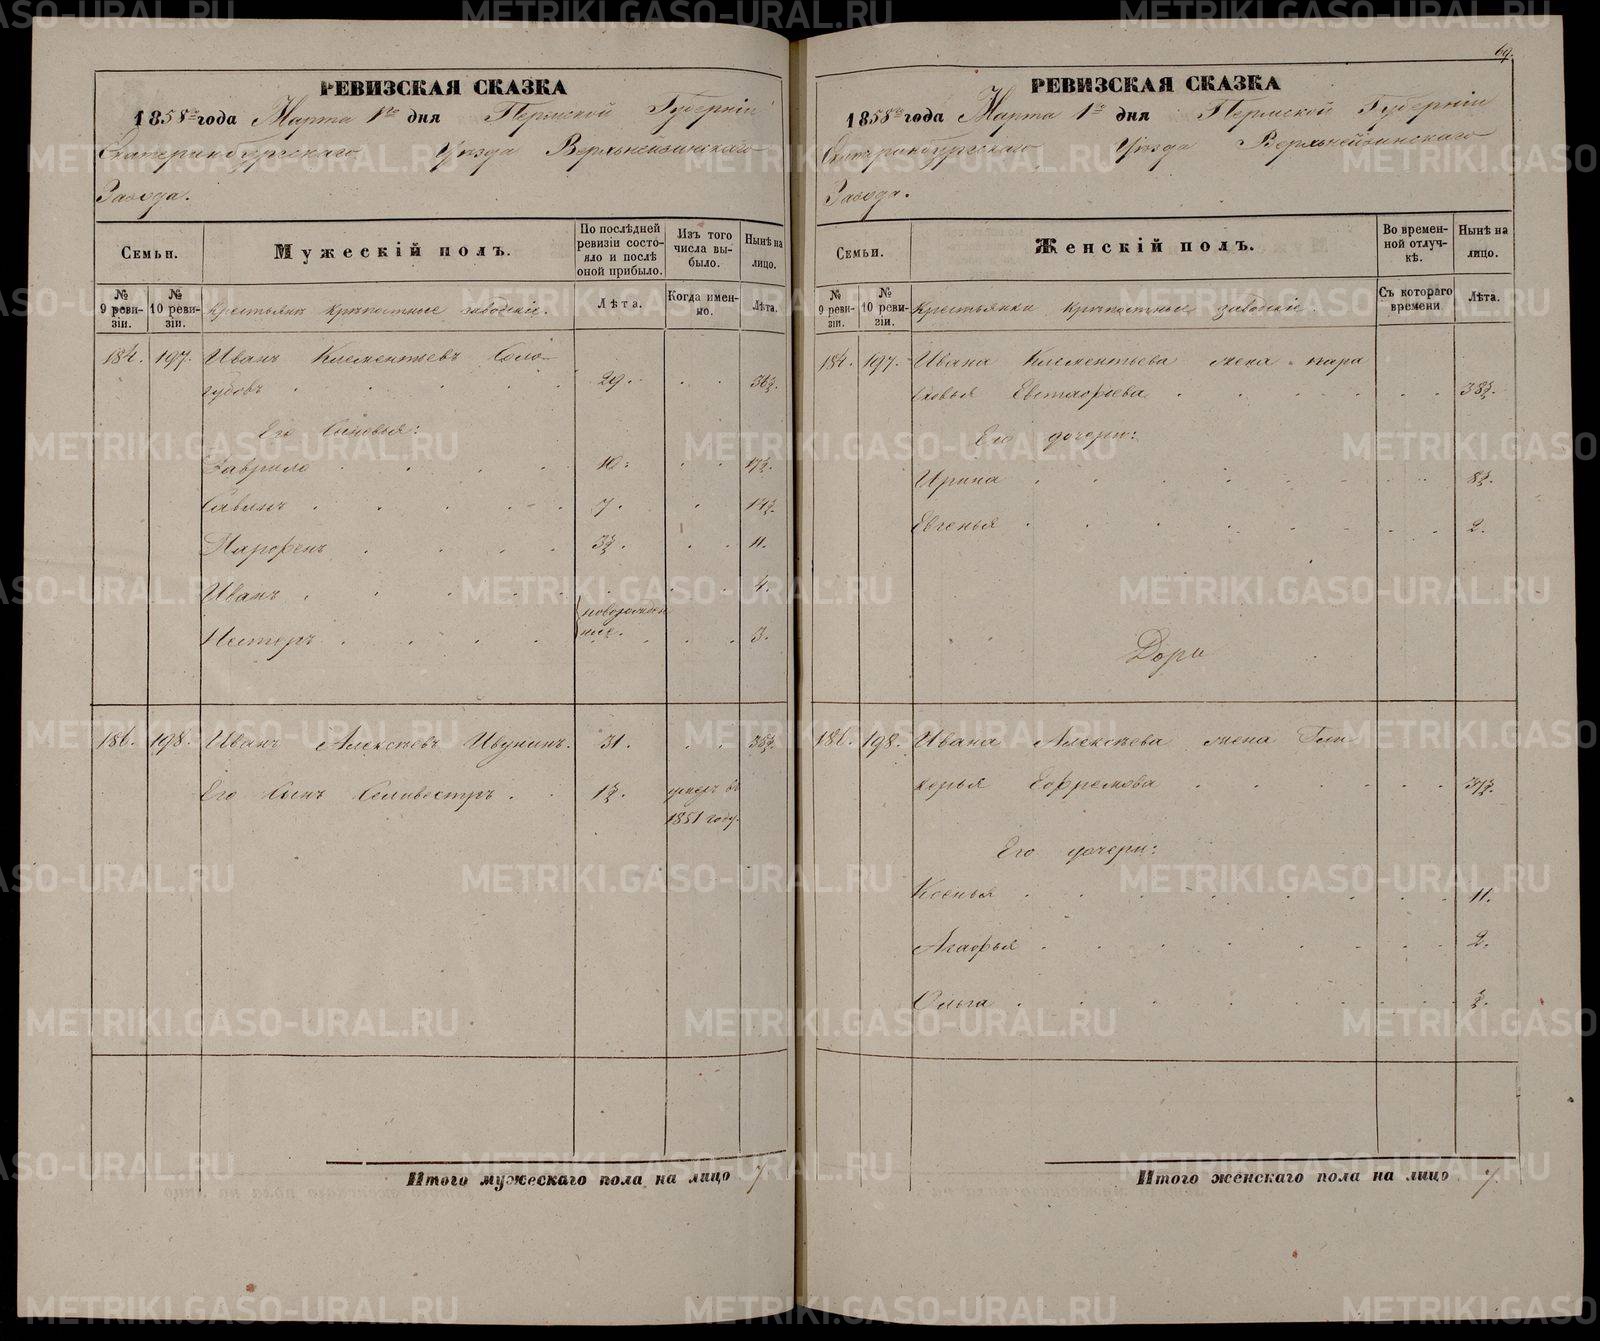 69.
РЕВИЗСКАЯ СКАЗКА
1858го года Марта 1го дня Пермской Губерніи
Екатеринбургскаго Уѣзда Верхнейвинскаго
Завода.
Семьи.
Мужескій полъ.
По послѣдней ревизіи состояло и послѣ оной прибыло.
Изъ того числа выбыло.
Нынѣ на лицо.
№ 9 ревизіи.
№ 10 ревизіи.
Крестьянѣ крѣпостные заводскіе.
Лѣта.
Когда именно.
Лѣта.
197. Иванъ Клементьевъ Соло
губовъ 29. 36½.
Его Сыновья:
Гаврило 10. 17½.
Савинъ 7. 14½.
Парофенъ 3½. 11.
Иванъ 4.
Нестеръ новорожден
ные. 3.
186. 198. Иванъ Алексѣевъ Ивукинъ. 31. 38½.
Его Сынъ Селивестръ 1½. умеръ въ
1851 году.
Итого мужескаго пола на лицо 7
РЕВИЗСКАЯ СКАЗКА
1858го года Марта 1го дня Пермской Губерніи
Екатеринбургскаго Уѣзда Верхнейвинскаго
Завода.
Семьи.
Женскій полъ.
Во временной отлучкѣ.
Нынѣ на лицо.
№ 9 ревизіи.
№ 10 ревизіи.
Крестьянки крѣпостные заводскіе.
Съ котораго времени
Лѣта.
197. Ивана Клементьева жена Пара
сковья Евстафьева 38½.
Его дочери:
Ирина 8½.
Евгенья 2.
186. 198. Ивана Алексѣева жена Гли
керья Ефремова 37½.
Его дочери:
Ксенья 11.
Агафья 2.
Ольга ½.
Итого женскаго пола на лицо 7.